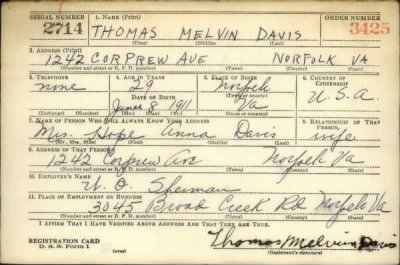 SERIAL NUMBER 1. NAME (Print) ORDER NUMBER
2714 THOMAS MELVIN DAVIS 3425
(First) (Middle) (Last)
2. ADDRESS (Print)
1242 CORPREW AVE NORFOLK VA
(Number and street or R. F. D. number) (Town) (County) (State)
3. TELEPHONE 4. AGE IN YEARS 5. PLACE OF BIRTH 6. COUNTRY OF CITIZENSHIP
none 29 Norfolk
DATE OF BIRTH (Town or county)
June 8 1911 Va U.S.A.
(Exchange) (Number) (Mo.) (Day) (Yr.) (State or country)
7. NAME OF PERSON WHO WILL ALWAYS KNOW YOUR ADDRESS 8. RELATIONSHIP OF THAT PERSON
Mrs. Hope Anna Davis wife
(Mr., Mrs., Miss) (First) (Middle) (Last)
9. ADDRESS OF THAT PERSON
1242 Corprew Ave Norfolk Va
(Number and street or R. F. D. number) (Town) (County) (State)
10. EMPLOYER'S NAME
Sherman
11. PLACE OF EMPLOYMENT OR BUSINESS
3045 Broad Creek Rd Norfolk Va
(Number and street or R. F. D. number) (Town) (County) (State)
I AFFIRM THAT I HAVE VERIFIED ABOVE ANSWERS AND THAT THEY ARE TRUE.
REGISTRATION CARD
D. S. S. Form 1 (over) Thomas Melvin Davis
(Registrant's signature)